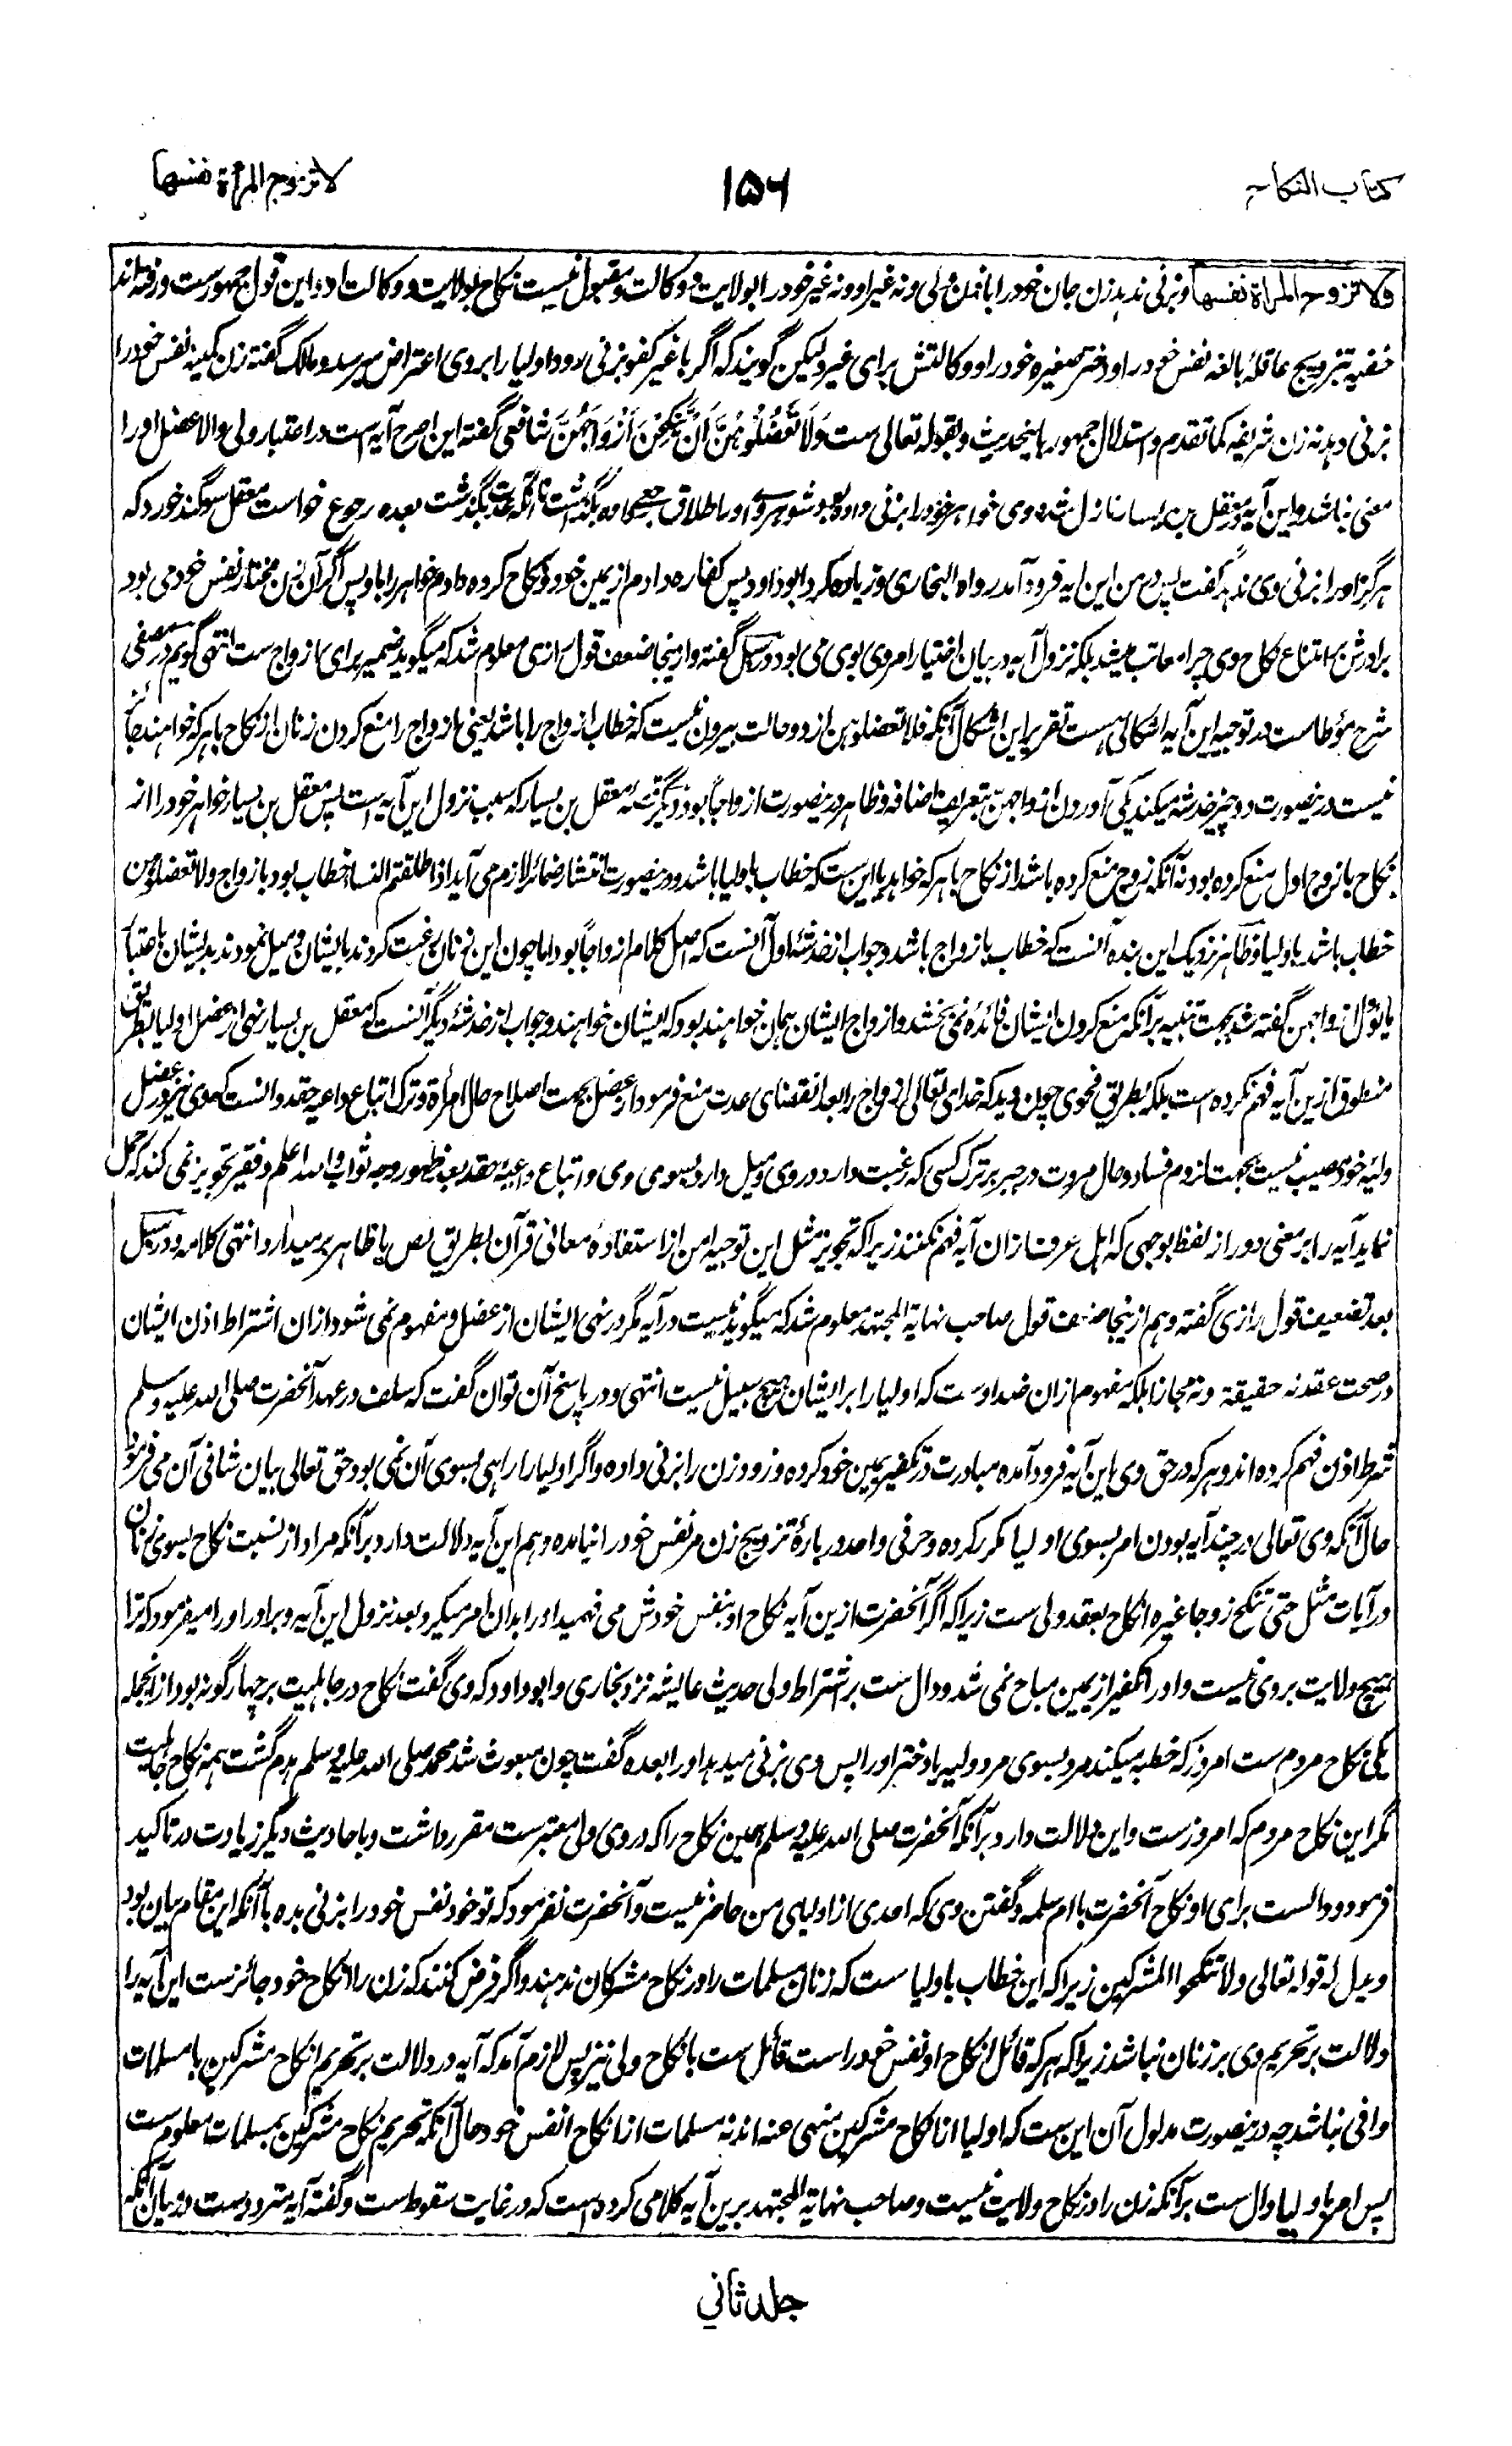 كتاب النكاح
١٥٦
لا تزوج المرأة نفسها
ولا تزوج المرأة نفسها و بزنی ندهد زن جان خود را باذن ولی و نه غیر او و نه غیر خود را بولایت و وکالت و مقبول نیست نکاح بولایت و وکالت او و این قول جمهورست و رفته اند
حنفیه بتزویج عاقله بالغه نفس خود را و دختر صغیره خود را و وکالتش برای غیر و لیکن گویند که اگر با غیر کفو بزنی رود اولیا را بروی اعتراض میرسد و مالک گفته زن کمینه نفس خود را
بزنی دهد نه زن شریفه کما تقدم و استدلال جمهور باینحدیث و بقوله تعالی ست وَلَا تَعْضُلُوهُنَّ أَنْ يَنْكِحْنَ أَزْوَاجَهُنَّ شافعی گفته این اصرح آیه است در اعتبار ولی والا عضل او را
معنی نباشد و این آیه در معقل بن یسار نازل شده وی خواهر خود را بزنی داده بود شوهر وی او را طلاق رجعی داده بگذاشت تا آنکه عدت بگذشت بعده رجوع خواست معقل سوگند خورد که
هرگز او را بزنی وی ندهد گفت پس در من این آیه فرود آمد رواه البخاری و زیاده کرد ابوداود پس کفاره دادم از یمین خود و نکاح کرده دادم خواهر را باو پس اگر آن زن مختار نفس خود می بود
برادرش بر امتناع نکاح وی چرا معاتب میشد بلکه نزول آیه در بیان اختیار امر وی بوی می بود در سبل گفته و ازینجا ضعف قول رازی معلوم شد که میگوید ضمیر برای ازواج ست انتهی گویم در مصفی
شرح مؤطاست در توجیه این آیه اشکالی هست تقریر این اشکال آنکه فلا تعضلوهن از دو حالت بیرون نیست که خطاب ازواج را باشد یعنی ازواج را منع کردن زنان از نکاح با هر که خواهند جائز
نیست درینصورت دو چیز خدشه میکند یکی آوردن ازواجهن بتعریف اضافه و ظاهر درینصورت ازواجا بود دیگر قصه معقل بن یسار که سبب نزول این آیه ست پس معقل بن یسار خواهر خود را از
نکاح با زوج اول منع کرده بود نه آنکه زوج منع کرده باشد از نکاح با هر که خواهد یا این ست که خطاب باولیا باشد و درینصورت انتشار ضمائر لازم می آید اذا طلقتم النساء خطاب بود بازواج ولا تعضلوهن
خطاب باشد باولیا و ظاهر نزدیک این بنده آنست که خطاب بازواج باشد و جواب از خدشه اول آنست که اصل کلام ازواجا بود اما چون این زنان رغبت کردند بایشان و میل نمودند بدیشان باعتبار
ما یؤل ازواجهن گفته شد بجهت تنبیه بر آنکه منع کردن ایشان فائده نمی بخشد و ازواج ایشان همان خواهند بود که ایشان خواهند و جواب از خدشه دیگر آنست که معقل بن یسار نهی از عضل اولیا بطریق
منطوق ازین آیه فهم نکرده است بلکه بطریق فحوی چون دید که خدای تعالی ازواج را بعد انقضای عدت منع فرمود از عضل بجهت اصلاح حال امرأة و ترک اتباع داعیه حقد دانست که وی نیز در عضل
ولیه خود مصیب نیست بجهت لزوم فساد و حال مروت در جبر بر ترک کسی که رغبت دارد در وی و میل دارد بسوی وی و اتباع داعیه حقد بعد ظهور وجه ثواب والله اعلم و فقیر تجویز نمی کند که حمل
نماید آیه را بر معنی دور از لفظ بوجهی که اهل عرف ازان آیه فهم نکنند زیرا که تجویز مثل این توجیه امن از استفاده معانی قرآن بطریق نص یا ظاهر بر میدارد انتهی کلامه و در سبل
بعد تضعیف قول رازی گفته و هم ازینجا ضعف قول صاحب نهایة المجتهد معلوم شد که میگوید نیست در آیه مگر نهی ایشان از عضل و مفهوم نمی شود ازان اشتراط اذن ایشان
در صحت عقد نه حقیقة و نه مجازا بلکه مفهوم ازان ضد اوست که اولیا را بر ایشان هیچ سبیل نیست انتهی و در پاسخ آن توان گفت که سلف در عهد آنحضرت صلی الله علیه وسلم
شرط اذن فهم کرده اند و هر که در حق وی این آیه فرود آمده مبادرت در تکفیر یمین خود کرده و زود زن را بزنی داده و اگر اولیا را راهی بسوی آن نمی بود حق تعالی بیان شافی آن می فرمود
حال آنکه وی تعالی در چند آیه بودن امر بسوی اولیا مکرر کرده و حرفی واحد درباره تزویج زن مر نفس خود را نیامده و هم این آیه دلالت دارد بر آنکه مراد از نسبت نکاح بسوی زنان
در آیات مثل حتی تنکح زوجا غیره انکاح بعقد ولی ست زیرا که اگر آنحضرت ازین آیه نکاح او بنفس خودش می فهمید او را بدان امر میکرد بعد نزول این آیه و برادر او را میفرمود که ترا
هیچ ولایت بروی نیست و او را تکفیر از یمین مباح نمی شد و دال ست بر اشتراط ولی حدیث عایشه نزد بخاری و ابوداود که وی گفت نکاح در جاهلیت بر چهار گونه بود ازانجمله
یکی نکاح مردم ست امروز که خطبه میکند مرد بسوی مرد ولیه یا دختر او را پس وی بزنی میدهد او را بعده گفت چون مبعوث شد محمد صلی الله علیه وسلم هدم گشت همه نکاح جاهلیت
مگر این نکاح مردم که امروزست و این دلالت دارد بر آنکه آنحضرت صلی الله علیه وسلم همین نکاح را که در وی ولی معتبرست مقرر داشت و باحادیث دیگر زیادت در تاکید
فرمود و دالست برای او نکاح آنحضرت با ام سلمه و گفتن وی که احدی از اولیای من حاضر نیست و آنحضرت نفرمود که تو خود نفس خود را بزنی بده با آنکه این مقام بیان بود
و یدل له قوله تعالی ولا تنکحوا المشرکین زیرا که این خطاب باولیا ست که زنان مسلمات را در نکاح مشرکان ندهند و اگر فرض کنند که زن را انکاح خود جائزست این آیه را
دلالت بر تحریم وی بر زنان نباشد زیرا که هر که قائل انکاح او نفس خود راست قائل ست بانکاح ولی نیز پس لازم آمد که آیه در دلالت بر تحریم انکاح مشرکین با مسلمات
وافی نباشد چه درینصورت مدلول آن این ست که اولیا از انکاح مشرکین منهی عنه اند نه مسلمات از انکاح انفس خود حال آنکه تحریم نکاح مشرکین بمسلمات معلوم ست
پس امر باولیا دال ست بر آنکه زن را در نکاح ولایت نیست و صاحب نهایة المجتهد برین آیه کلامی کرده است که در غایت سقوط ست و گفته آیه متردد ست در میان آنکه
جلد ثاني